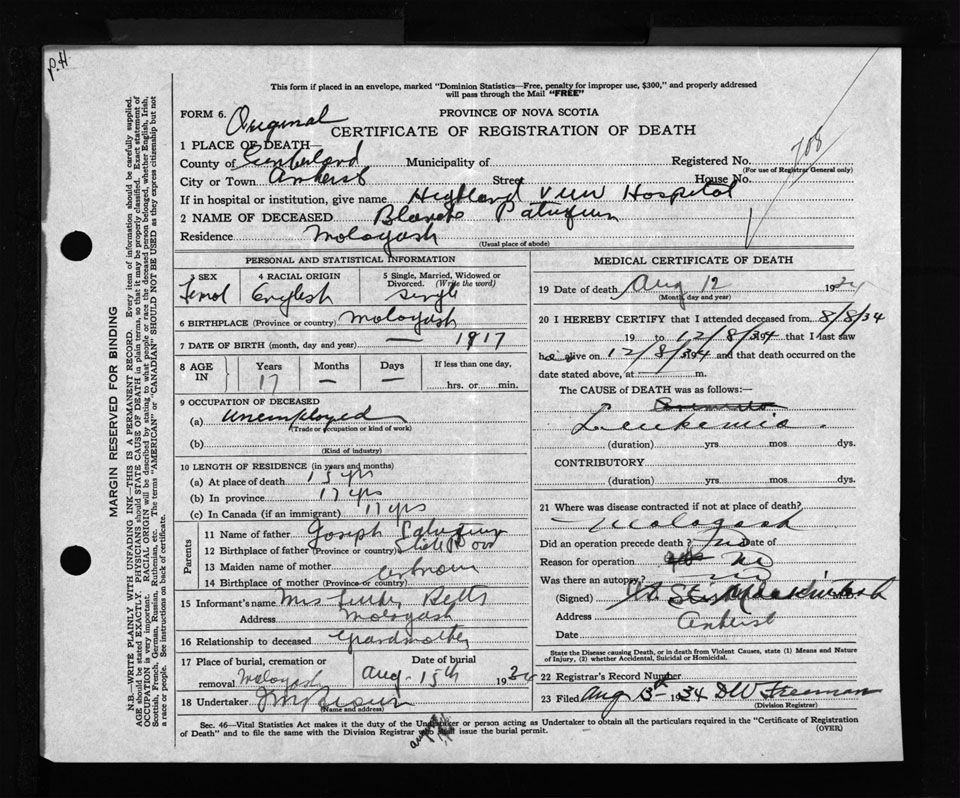 P.H.
This form if placed in an envelope, marked "Dominion Statistics—Free, penalty for improper use, $300," and properly addressed
will pass through the Mail "FREE"
FORM 6. Original PROVINCE OF NOVA SCOTIA
CERTIFICATE OF REGISTRATION OF DEATH
1 PLACE OF DEATH—
County of Cumberland Municipality of Registered No. 708
(For use of Registrar General only)
City or Town Amherst Street House No.
If in hospital or institution, give name Highland View Hospital
2 NAME OF DECEASED Blanche
Residence Malagash
(Usual place of abode)
PERSONAL AND STATISTICAL INFORMATION
3 SEX 4 RACIAL ORIGIN 5 Single, Married, Widowed or Divorced. (Write the word)
Femal English Single
6 BIRTHPLACE (Province or country) Malagash
7 DATE OF BIRTH (month, day and year) — 1917
8 AGE IN Years Months Days If less than one day,
17 — — hrs. or min.
9 OCCUPATION OF DECEASED
(a) Unemployed
(Trade or occupation or kind of work)
(b)
(Kind of industry)
10 LENGTH OF RESIDENCE (in years and months)
(a) At place of death
(b) In province 17 yrs
(c) In Canada (if an immigrant) 17 yrs
Parents
11 Name of father Joseph
12 Birthplace of father (Province or country)
13 Maiden name of mother
14 Birthplace of mother (Province or country)
15 Informant's name Mrs Betts
Address Malagash
16 Relationship to deceased Grandmother
17 Place of burial, cremation or removal Malagash Date of burial Aug. 15th 1934
18 Undertaker Brown
(Name and address)
MEDICAL CERTIFICATE OF DEATH
19 Date of death Aug 12 1934
(Month, day and year)
20 I HEREBY CERTIFY that I attended deceased from 8/8/34
19 to 12/8/34 that I last saw
h alive on 12/8/34 and that death occurred on the
date stated above, at m.
The CAUSE OF DEATH was as follows:—
Leukemia.
(duration) yrs mos dys.
CONTRIBUTORY
(duration) yrs mos dys.
21 Where was disease contracted if not at place of death?
Malagash
Did an operation precede death? no Date of
Reason for operation no
Was there an autopsy? no
(Signed)
Address Amherst
Date
State the Disease causing Death, or in death from Violent Causes, state (1) Means and Nature
of Injury, (2) whether Accidental, Suicidal or Homicidal.
22 Registrar's Record Number
23 Filed Aug 13th 1934 DW Freeman
(Division Registrar)
Sec. 46—Vital Statistics Act makes it the duty of the Undertaker or person acting as Undertaker to obtain all the particulars required in the "Certificate of Registration
of Death" and to file the same with the Division Registrar who shall issue the burial permit. (OVER)
MARGIN RESERVED FOR BINDING
N.B.—WRITE PLAINLY WITH UNFADING INK—THIS IS A PERMANENT RECORD. Every item of information should be carefully supplied.
AGE should be stated EXACTLY. PHYSICIANS should STATE CAUSE OF DEATH in plain terms, so that it may be properly classified. Exact statement of
OCCUPATION is very important. RACIAL ORIGIN will be described by stating to what people or race the deceased person belonged, whether English, Irish,
Scottish, French, German, Russian, Ruthenian, etc. The terms "AMERICAN" or "CANADIAN" SHOULD NOT BE USED as they express citizenship but not
a race or people. See instructions on back of certificate.